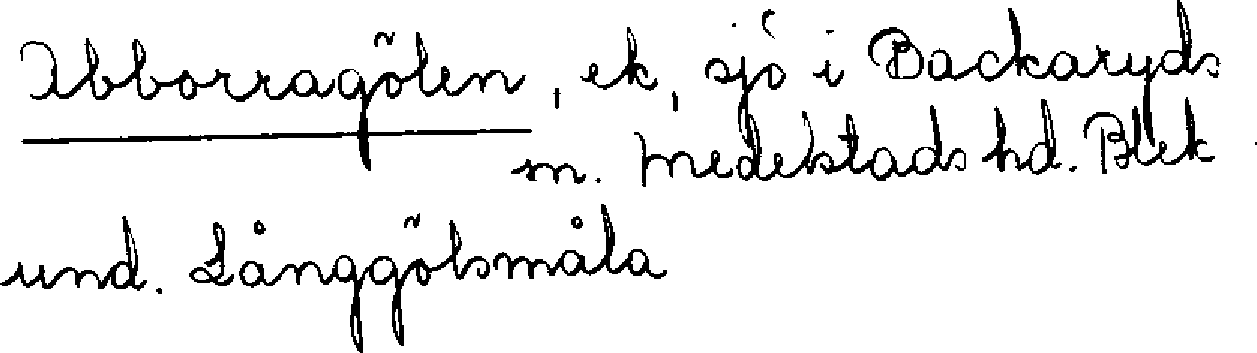 Abborragölen, ek, sjö i Backaryds
sn. Medelstads hd. Blek
und. Långgölsmåla